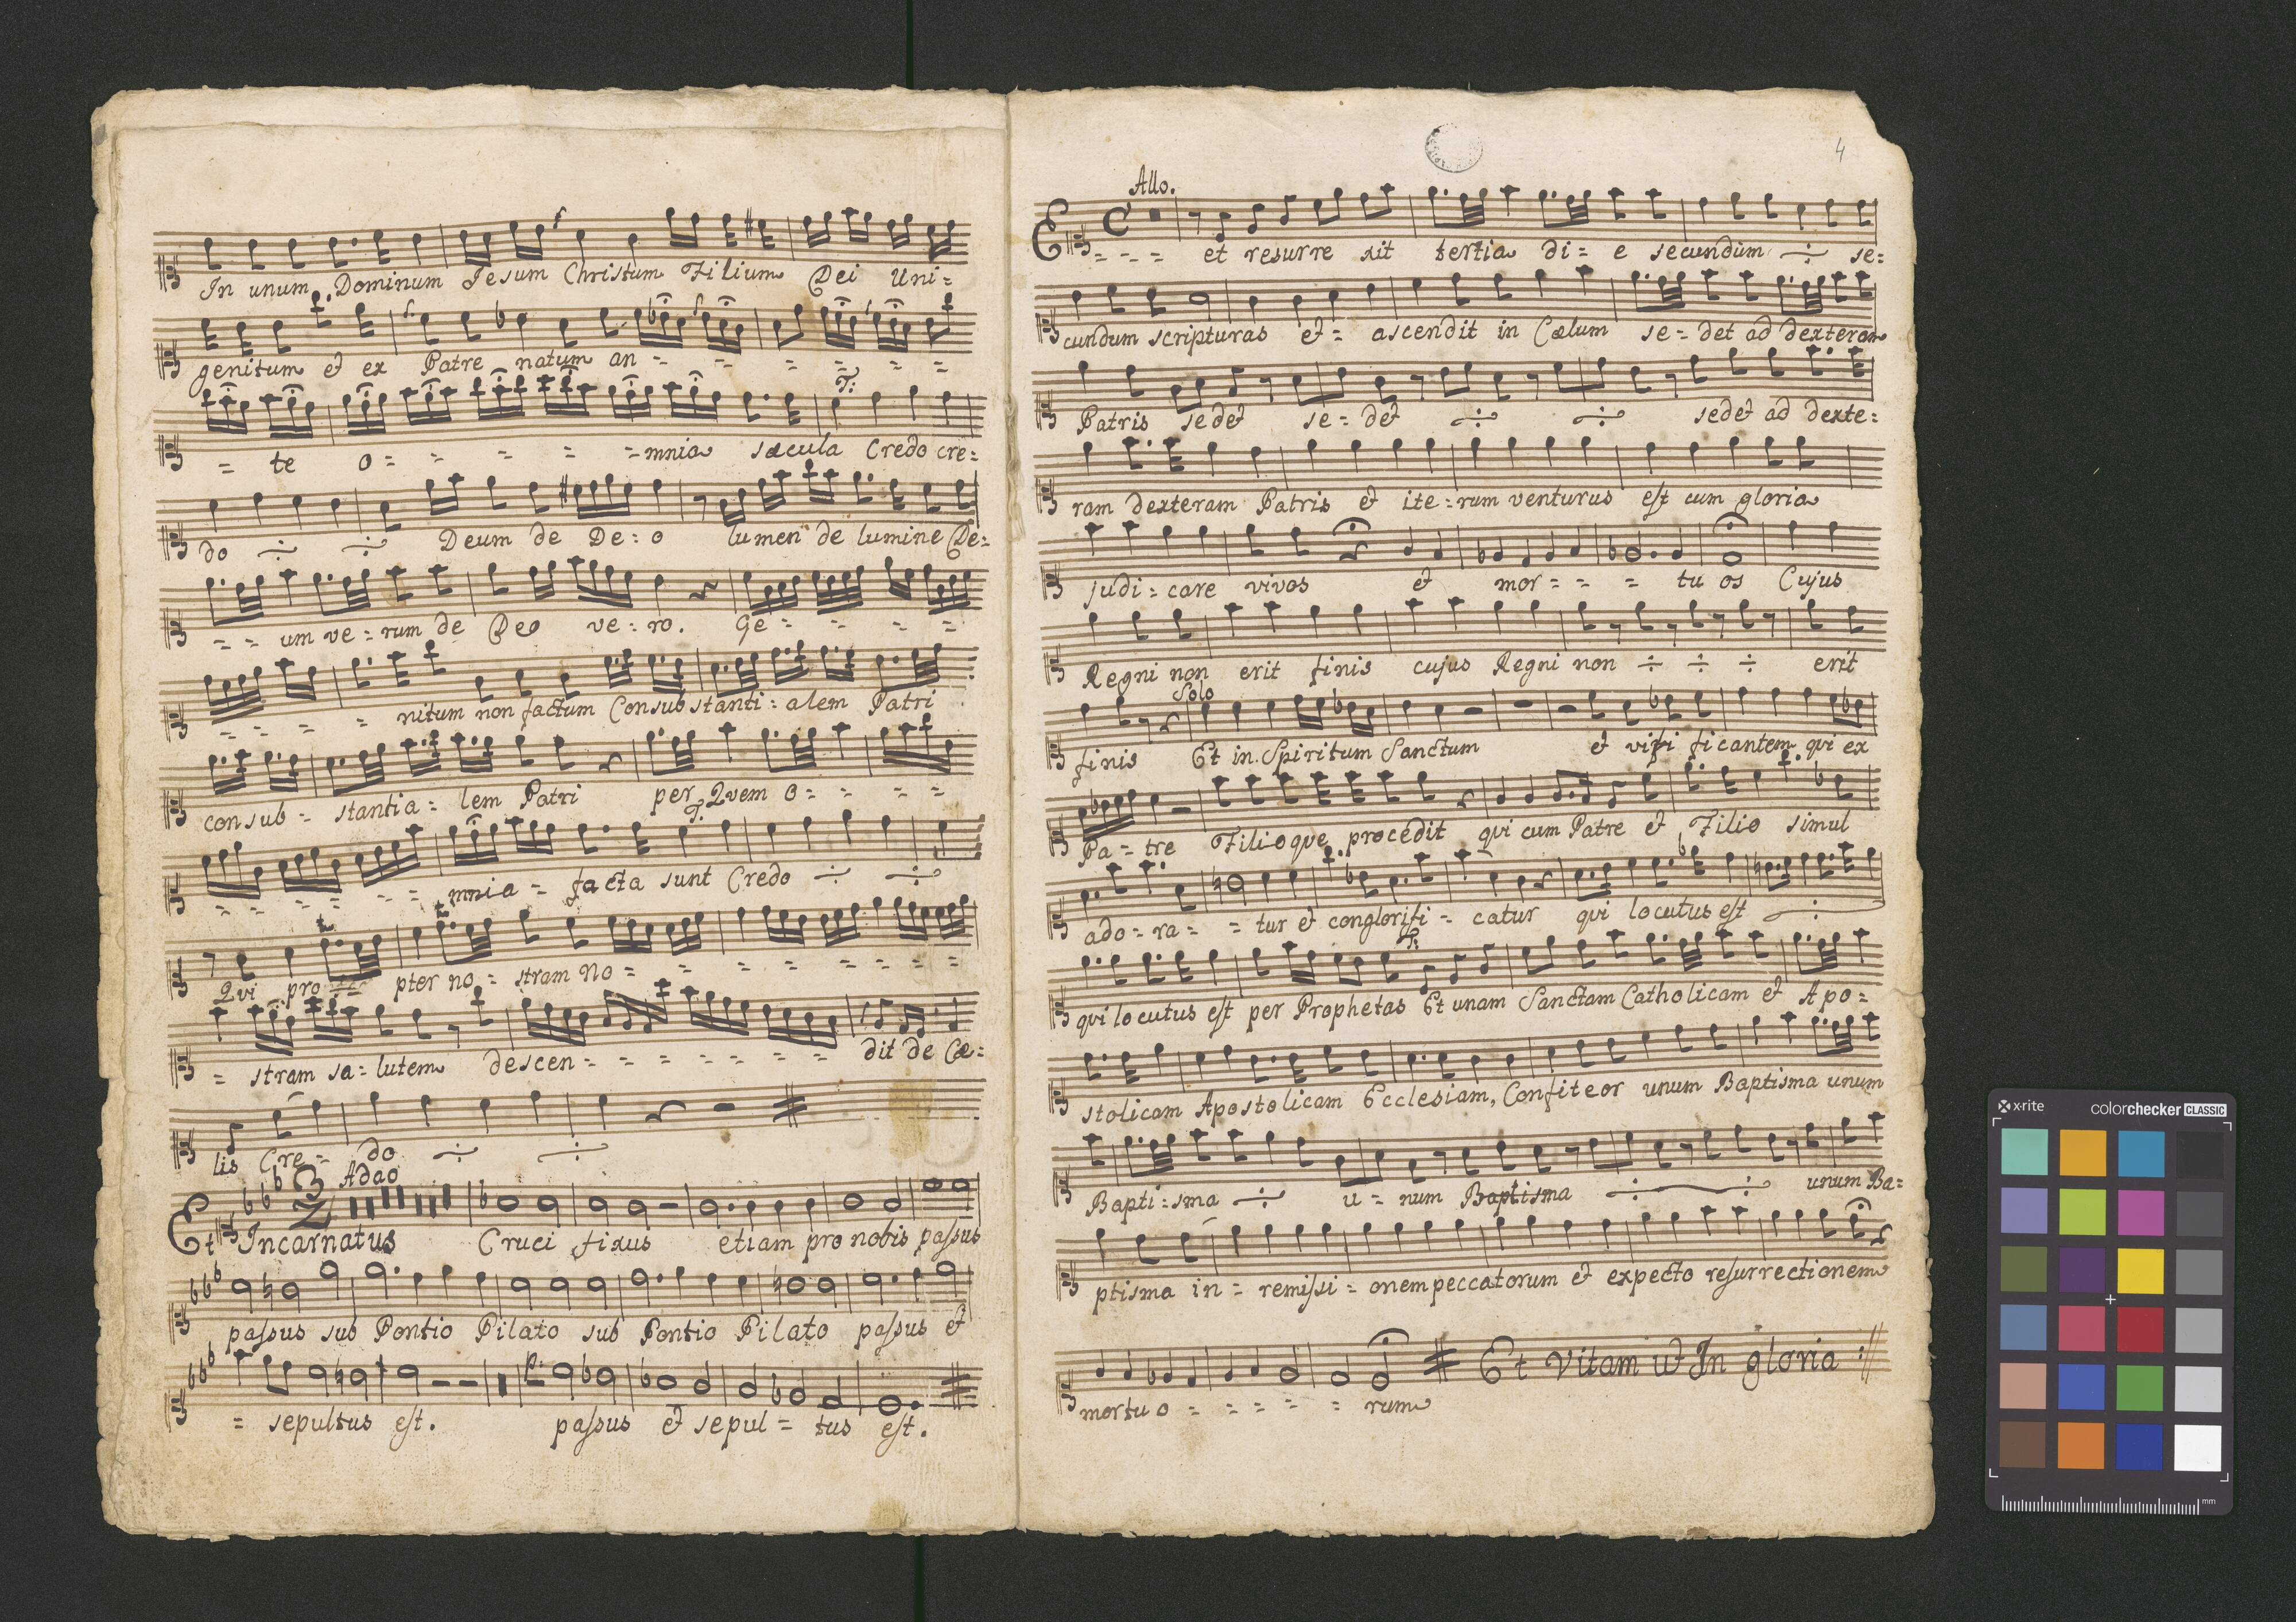 In unum Dominum Jesum Christum Filium Dei Uni=
genitum et ex Patre natum an= = = = =
= te o= = = = =mnia sæcula Credo cre=
T:
do Deum de De: o lumen de lumine De=
= = um ve: rum de Deo ve: ro. Ge= = = =
= = = = nitum non factum Consubstanti: alem Patri
consub= stantia= lem Patri per Qvem o= = = =
T.
= = = = = = mnia= facta sunt Credo
Qvi pro pter no= stram No= = = = = = =
= stram sa= lutem descen= = = = = = = dit de Cæ=
lis Cre= do
Adao
Et Incarnatus Cruci fixus etiam pro nobis passus
passus sub Pontio Pilato sub Pontio Pilato passus et
p:
= sepultus est. passus et sepul= tus est.
4
Allo.
= = = et resurre xit tertia di= e secundum se:
cundum scripturas et= ascendit in Cælum se= det ad dexteram
Patris sedet se= det sedet ad dexte:
ram dexteram Patris et ite: rum venturus est cum gloria
judi: care vivos et mor= = = tu os Cujus
Regni non erit finis cujus Regni non erit
Solo
finis Et in Spiritum Sanctum et vivi ficantem qvi ex
Pa= tre Filioqve procedit qvi cum Patre et Filio simul
ado= ra= = tur et conglorifi= catur qvi locutus est
T:
qvi locutus est per Prophetas Et unam Sanctam Catholicam et Apo=
stolicam Apostolicam Ecclesiam, Confiteor unum Baptisma unum
Bapti=sma u= num Baptisma unum Ba=
ptisma in= remissi= onem peccatorum et expecto resurrectionem
mortuo= = = = = rum Et Vitam ut In gloria
x-rite colorchecker CLASSIC
mm